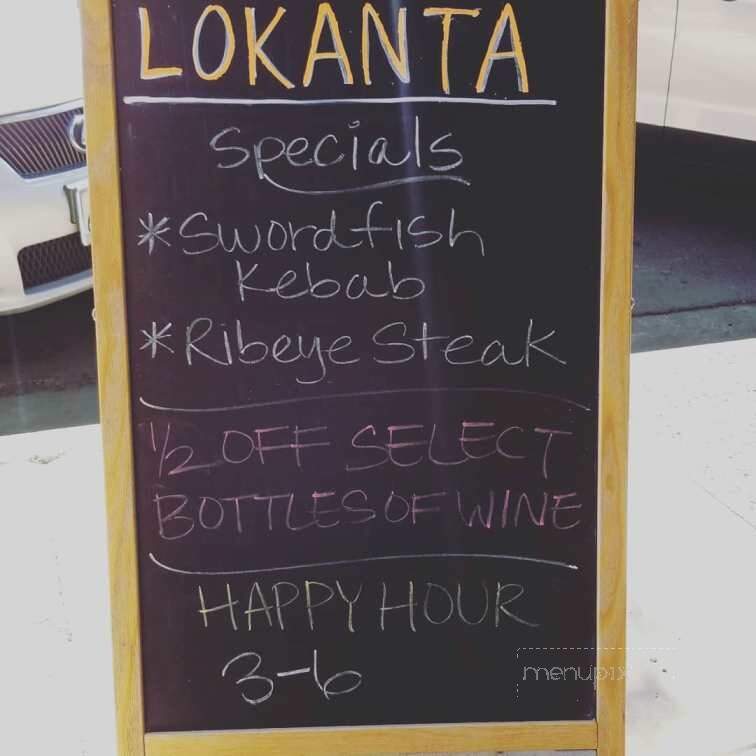 LOKANTA
Specials
*Swordfish
Kebab
*Ribeye Steak
1/2 OFF SELECT
BOTTLES OF WINE
HAPPY HOUR
3-6
menupix